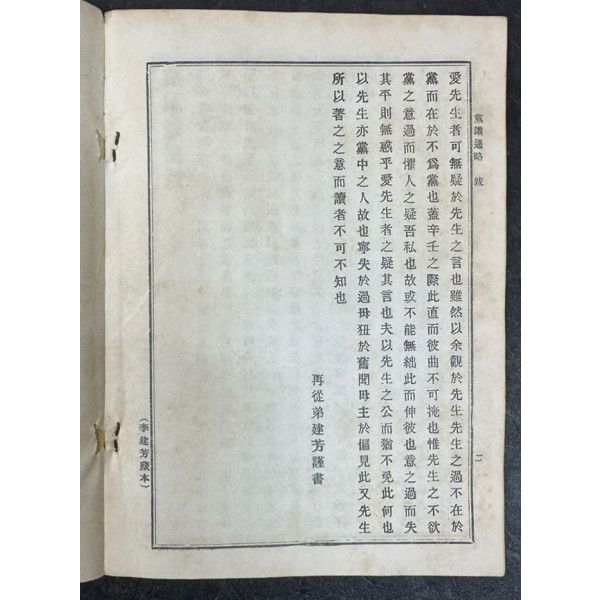 黨議通略 跋 二
愛先生者可無疑於先生之言也雖然以余觀於先生先生之過不在於
黨而在於不爲黨也蓋辛壬之際此直而彼曲不可掩也惟先生之不欲
黨之意過而懼人之疑吾私也故或不能無絀此而伸彼也意之過而失
其平則無惑乎愛先生者之疑其言也夫以先生之公而猶不免此何也
以先生亦黨中之人故也寧失於過毋狃於舊聞毋主於偏見此又先生
所以著之之意而讀者不可不知也
再從弟建芳謹書
(李建芳藏本)